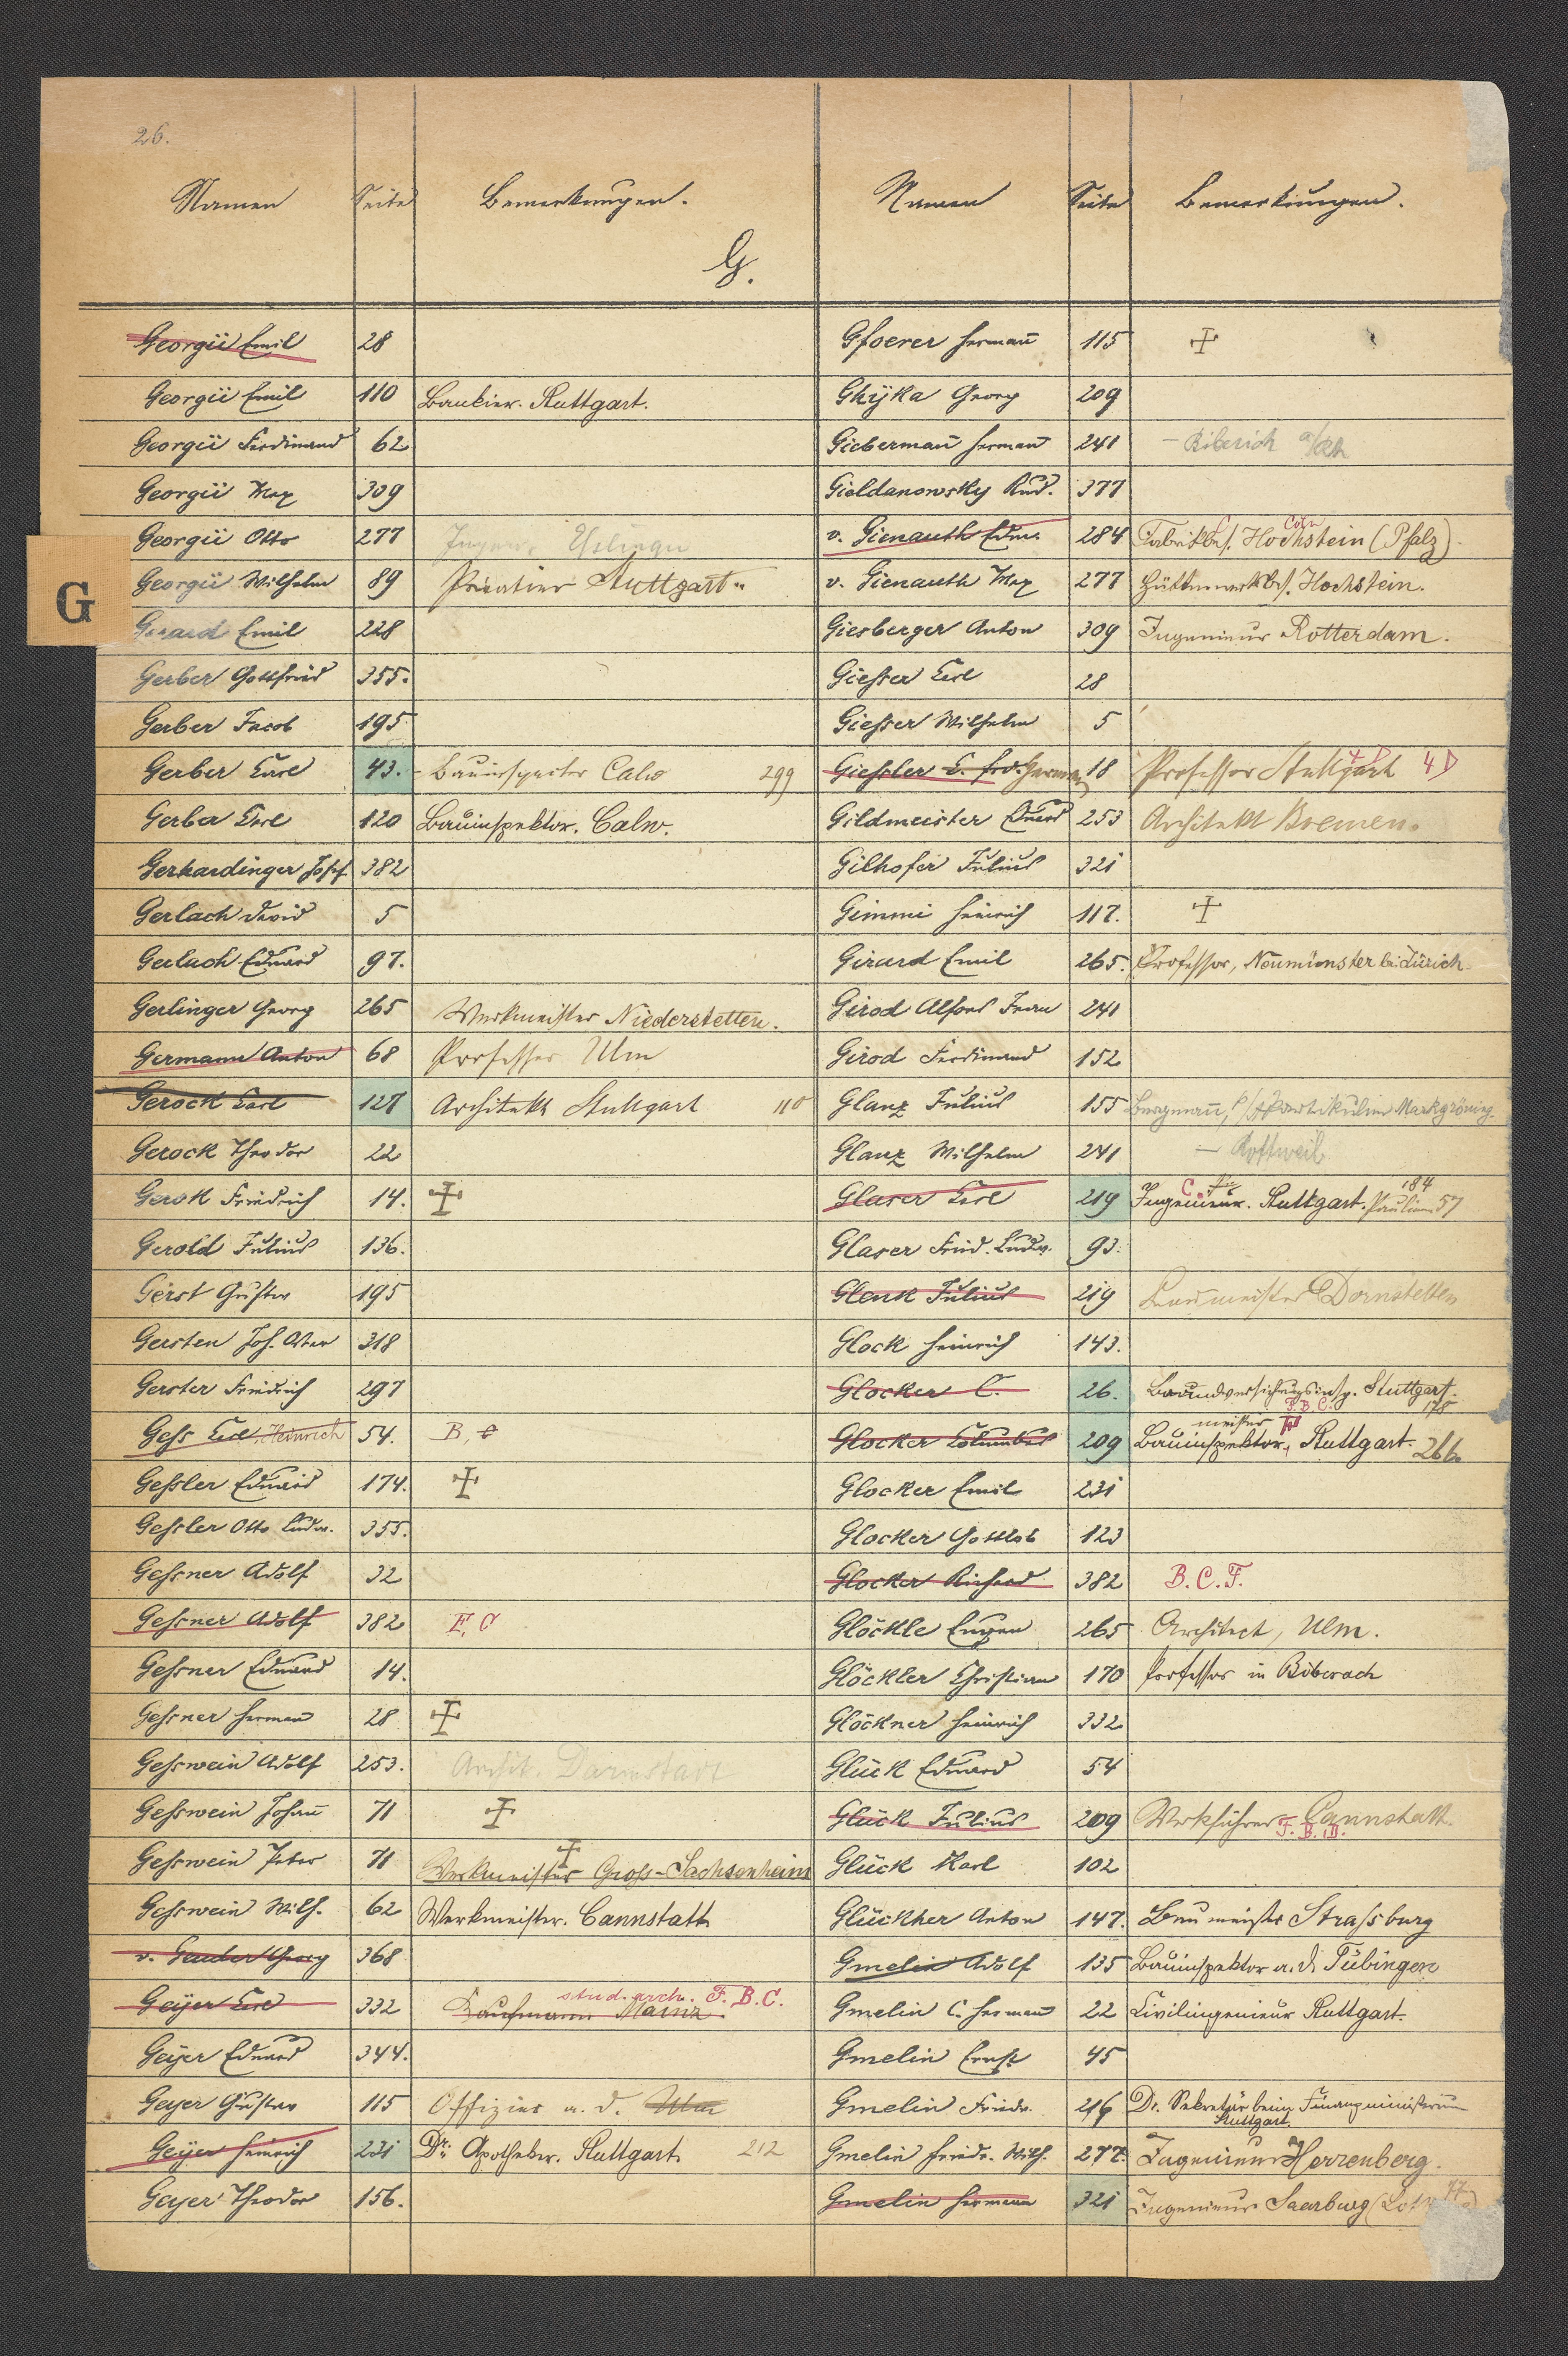 26.
Namen Seite Bemerkungen. Namen Seite Bemerkungen.
G.
G
Georgii Emil 28
Georgii Emil 110 Bankier. Stuttgart.
Georgii Ferdinand 62
Georgii Max 309
Georgii Otto 277 Esslingen
Georgii Wilhelm 89 Privatier Stuttgart.
Gerard Emil 228
Gerber Gottfried 355.
Gerber Jacob 195
Gerber Carl 43. Bauinspector Calw 299
Gerber Carl 120 Bauinspektor. Calw.
Gerhardinger Josef 382
Gerlach David 5
Gerlach Eduard 97.
Gerlinger Georg 265 Werkmeister Niederstetten.
Germann Anton 68 Professor Ulm
Gerock Carl 127 Architekt Stuttgart 110
Gerock Theodor 22
Gerok Friedrich 14.
Gerold Julius 136.
Gerst Gustav 195
Gersten Joh. 318
Gerster Friedrich 297
Gess Carl, Heinrich 54. B, C
Gessler Eduard 174.
Gessler Otto Ludw. 355.
Gessner Adolf 32
Gessner Adolf 382 F. C
Gessner Eduard 14.
Gessner Hermann 28
Gesswein Adolf 253. Archit. Darmstadt
Gesswein Johann 71
Gesswein Peter 71 Werkmeister Gross-Sachsenheim
Gesswein Wilh. 62 Werkmeister. Cannstatt
v. Georg 368
Geijer Carl 332 Kaufmann Mainz. stud. arch. F. B. C.
Geijer Eduard 344.
Geyer Gustav 115 Offizier a. d. Ulm
Geijer Heinrich 231 Dr. Apotheker. Stuttgart. 212
Geyer Theodor 156.
Gfoerer Hermann 115
Ghijka Georg 209
Giebermann Hermann 241 – Biberich a/Rh
Gieldanowsky Rud. 377
v. Gienauth Edm. 284 Fabrikbes. Hochstein (Pfalz). C
v. Gienauth Max 277 Hüttenwerkbes. Hochstein.
Giesberger Anton 309 Ingenieur Rotterdam.
Giesser Carl 28
Giesser Wilhelm 5
Giessler C. Frd. Herman 18 Professor Stuttgart 4 D
Gildmeister Eduard 253 Architekt Bremen.
Gilhofer Julius 321
Gimmi Heinrich 117.
Girard Emil 265. Professor, Neumünster bei Zürich.
Girod Alfons 241
Girod Ferdinand 152
Glanz Julius 155 Bergmann, Partikulier Markgröning.
Glanz Wilhelm 241 – Rottweil
Glaser Carl 219 C. Ingenieur. Stuttgart. 184 Paulinen 57
Glaser Fried. Ludw. 93.
Glenk Julius 219 Baumeister Dornstetten
Glock Heinrich 143.
Glocker C. 26. Brandversicherungsinsp. Stuttgart. 178
Glocker Columbus 209 Bauinspektor, meister F. B. C. Stuttgart. 266.
Glocker Emil 231
Glocker Gottlob 123
Glocker Richard 382 B. C. F.
Glöckle Eugen 265 Architect, Ulm.
Glöckler Christian 170 Professor in Biberach
Glöckner Heinrich 332
Glück Eduard 54
Glück Julius 209 Werkführer Cannstatt. F. B. D.
Glück Karl 102
Glückher Anton 147. Baumeister Strassburg
Gmelin Adolf 135 Bauinspektor a. D. Tübingen
Gmelin C. Hermann 22 Civilingenieur Stuttgart.
Gmelin Ernst 45
Gmelin Friedr. 216 Dr. Sekretär beim Finanzministerium
Stuttgart.
Gmelin Friedr. Wilh. 277. Ingenieur Herrenberg.
Gmelin Hermann 321 Ingenieur Saarburg